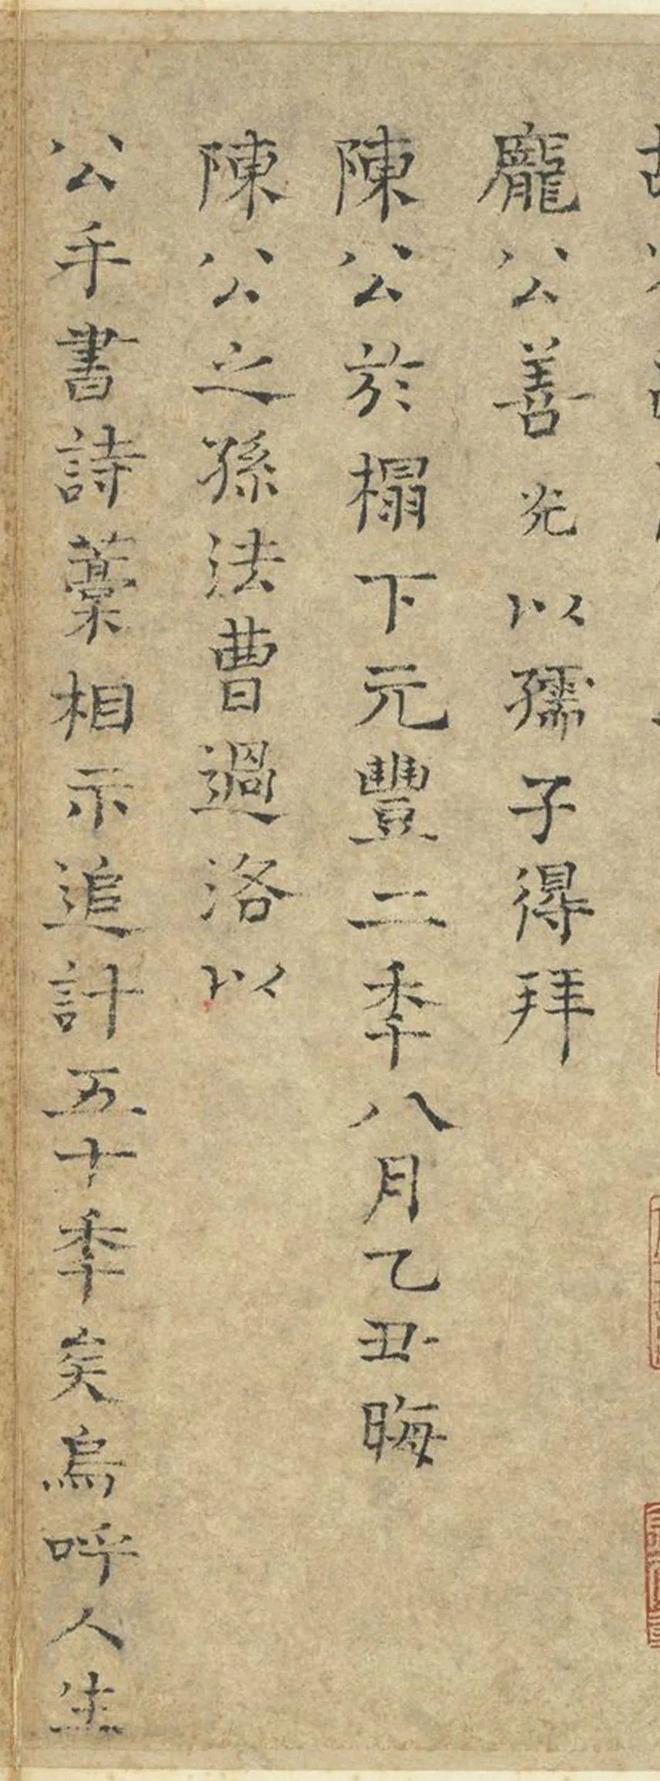 龐公善光以孺子得拜
陳公於榻下元豐二秊八月乙丑晦
陳公之孫法曹過洛以
公手書詩藁相示追計五十秊矣烏呼人生